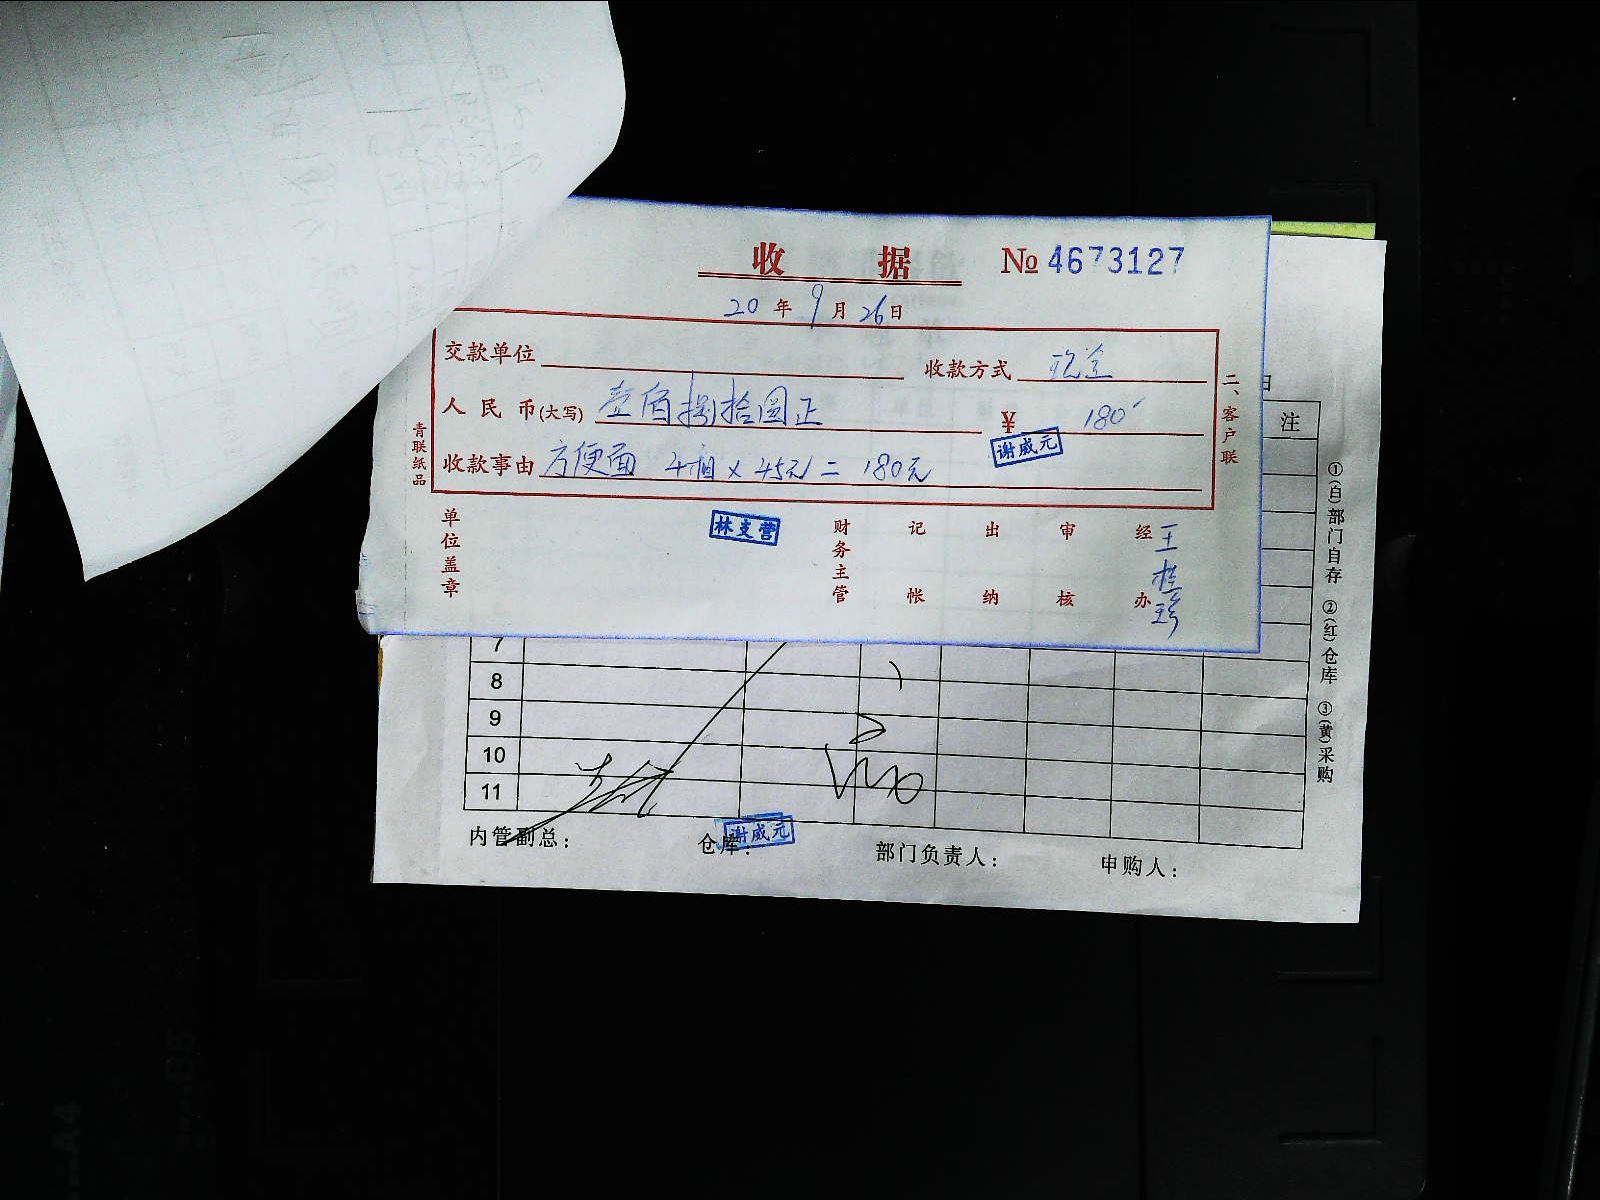 收 据 № 4673127
20 年 9 月 26 日
交款单位 收款方式 现金
人民币(大写) 壹佰捌拾圆正 ¥ 180
谢威元
收款事由 方便面 4箱 × 45元 = 180元
青联纸品
二、客户联
单位盖章 林支营 财务主管 记帐 出纳 审核 经办 王桂珍
注
①(白)部门自存 ②(红)仓库 ③(黄)采购
7
8
9
10
11
内管副总: 仓库: 谢威元 部门负责人: 申购人:
A4